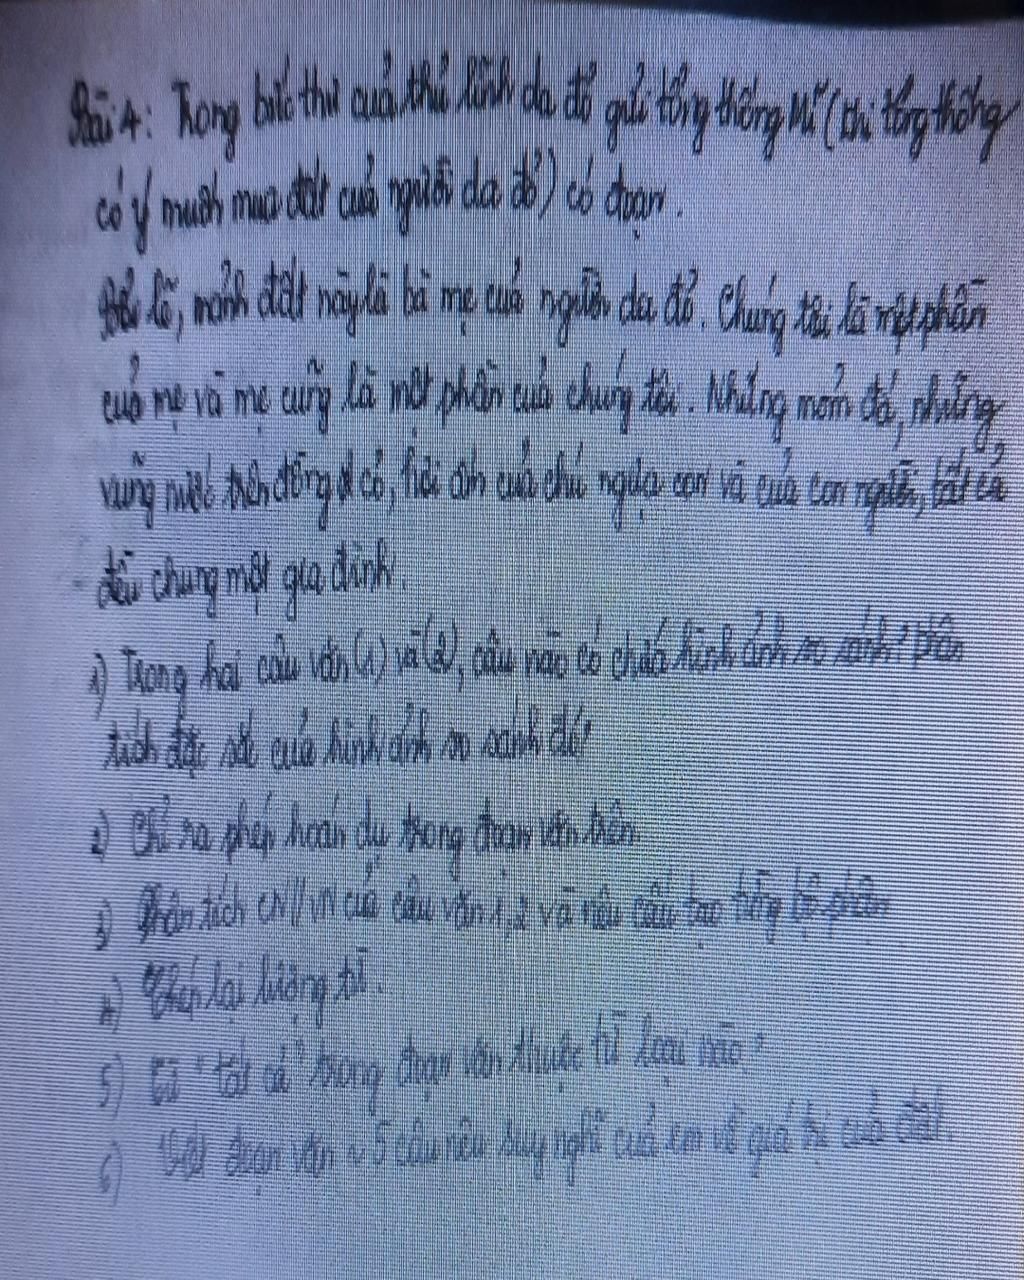 Bài 4: Trong bức thư của thủ lĩnh da đỏ gửi tổng thống Mĩ (khi tổng thống
có ý muốn mua đất của người da đỏ) có đoạn.
Bởi lẽ, mảnh đất này là bà mẹ của người da đỏ. Chúng tôi là một phần
của mẹ và mẹ cũng là một phần của chúng tôi. Những mỏm đá, những
vũng nước trên đồng cỏ, hơi ấm của chú ngựa con và của con người, tất cả
đều chung một gia đình.
1) Trong hai câu văn (1) và (2), câu nào có chứa hình ảnh so sánh? Phân
tích đặc sắc của hình ảnh so sánh đó!
2) Chỉ ra phép hoán dụ trong đoạn văn trên.
3) Phân tích CN//VN của câu văn 1,2 và nêu cấu tạo từng bộ phận
4) Chép lại lượng từ.
5) Từ "tất cả" trong đoạn văn thuộc từ loại nào?
6) Viết đoạn văn ~ 5 câu nêu suy nghĩ của em về giá trị của đất.